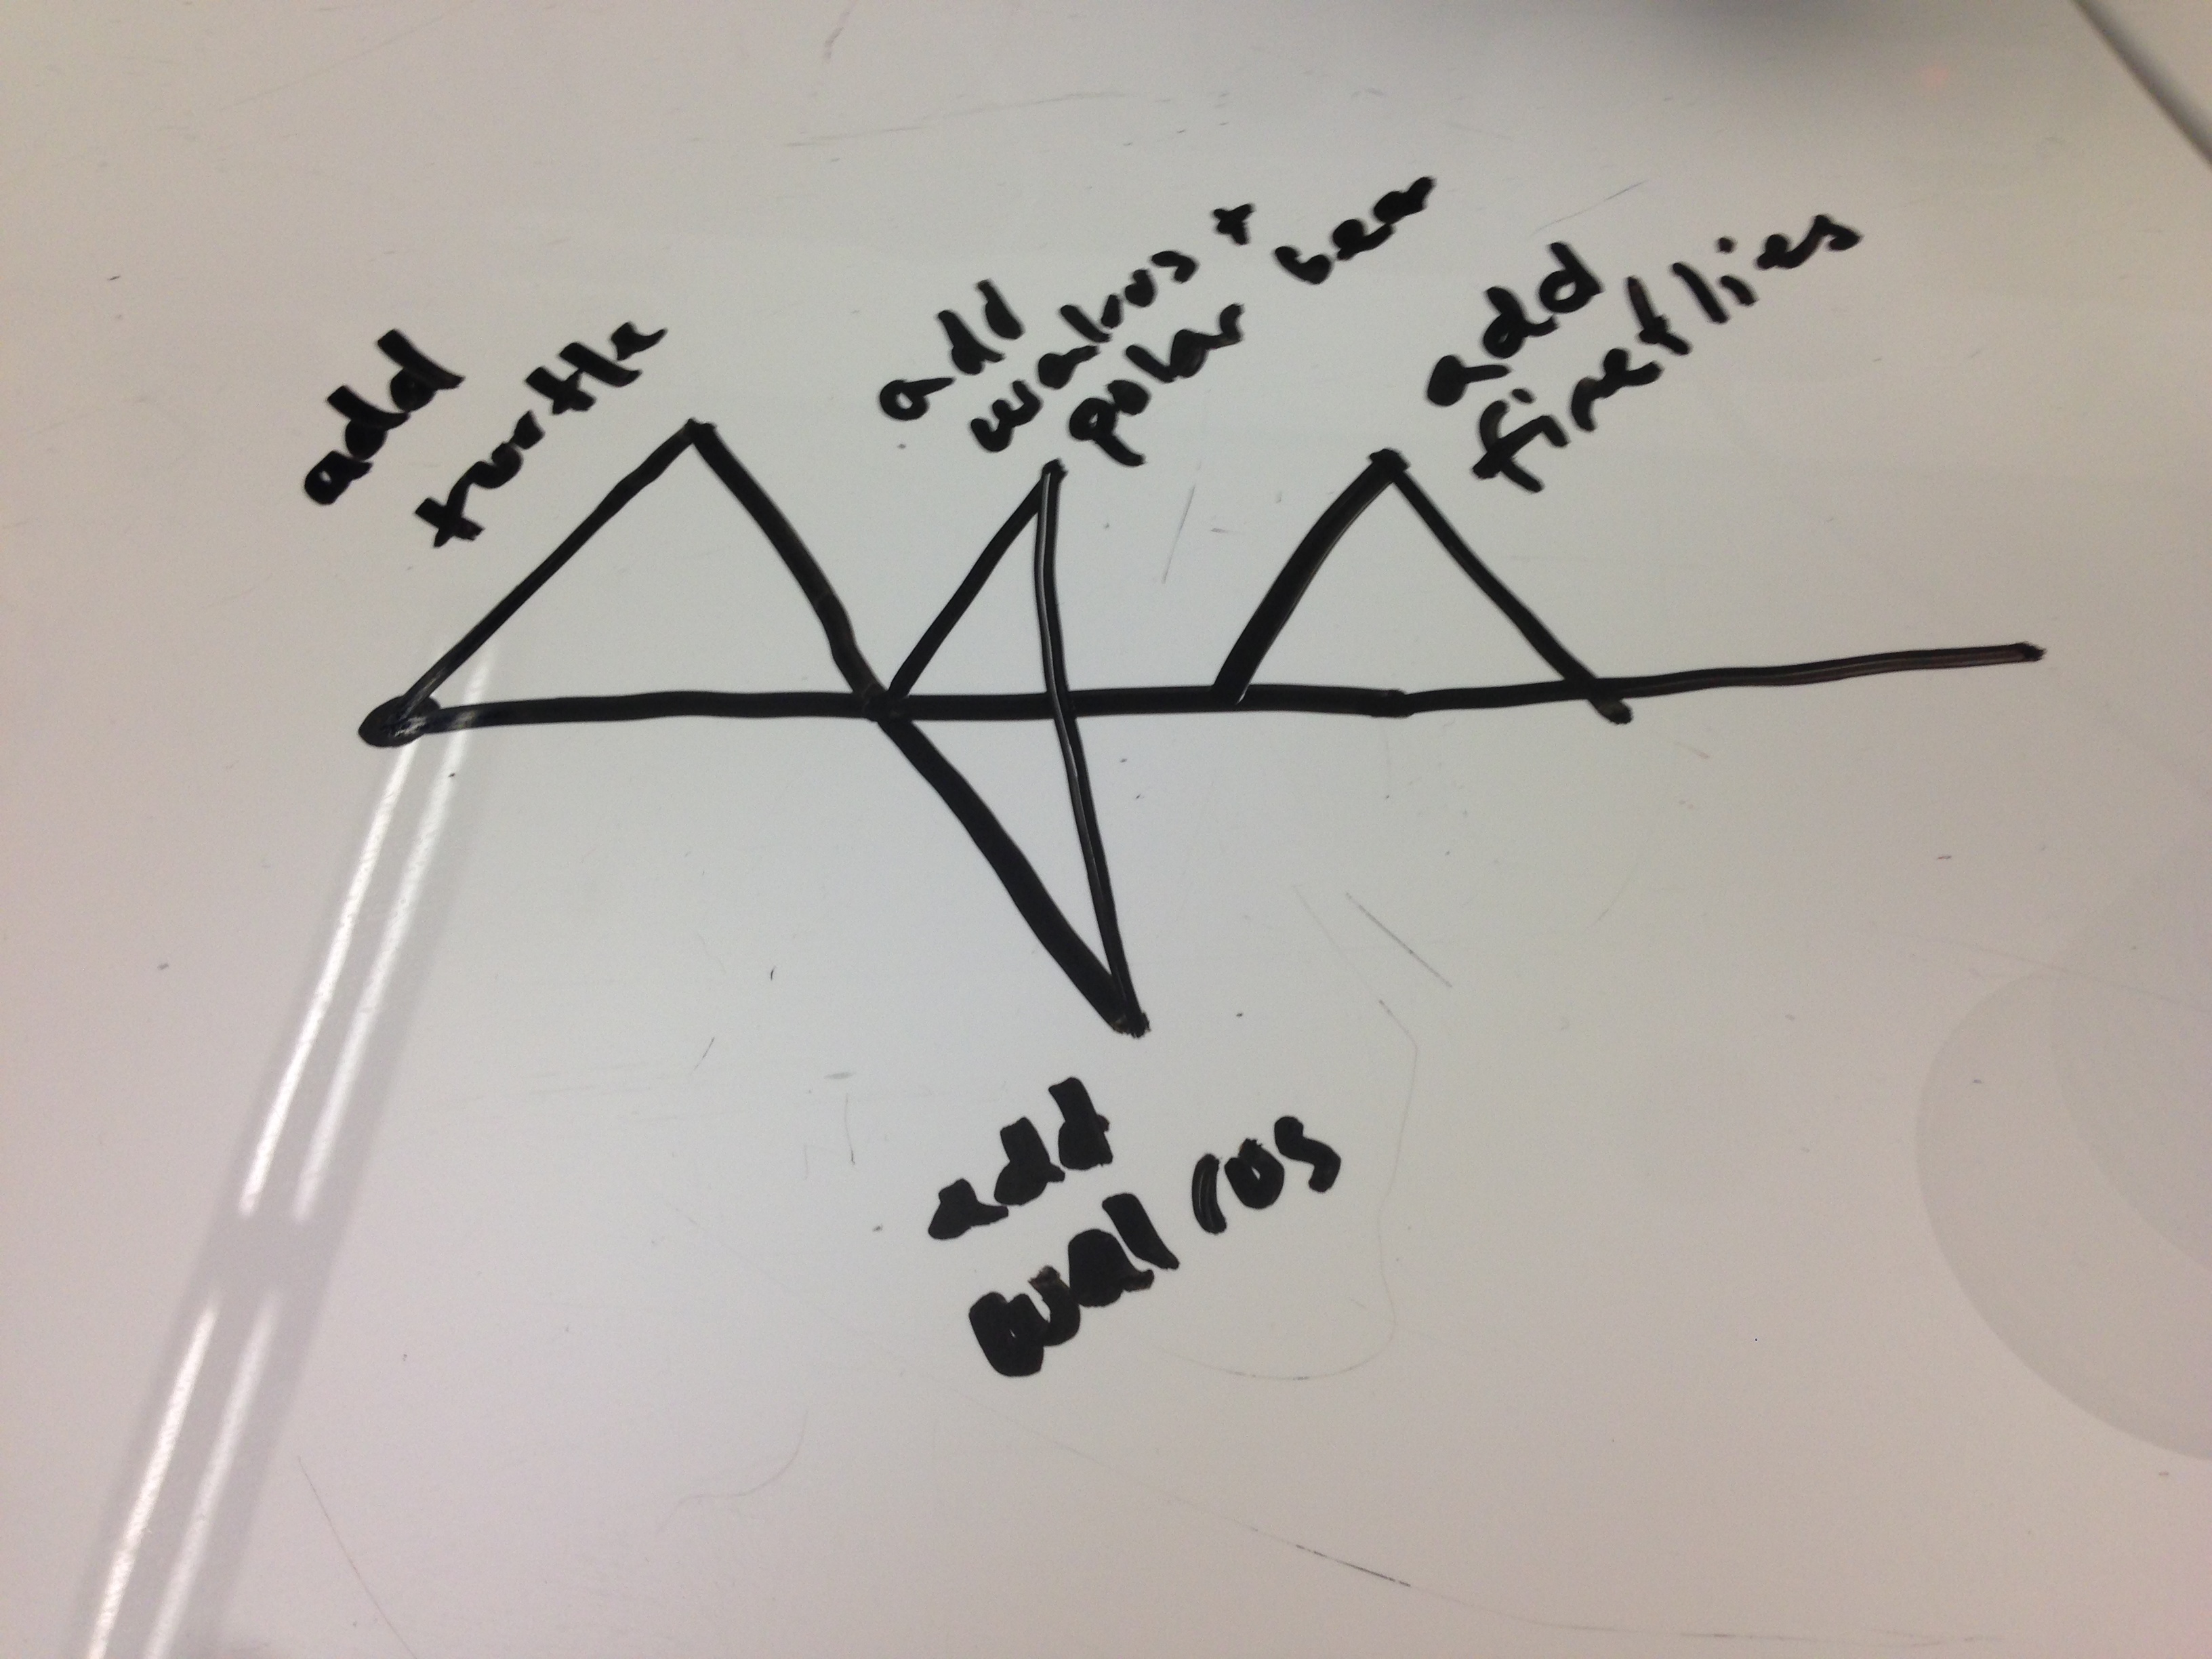 add
turtle
add
walros +
polar bear
add
fireflies
add
walros